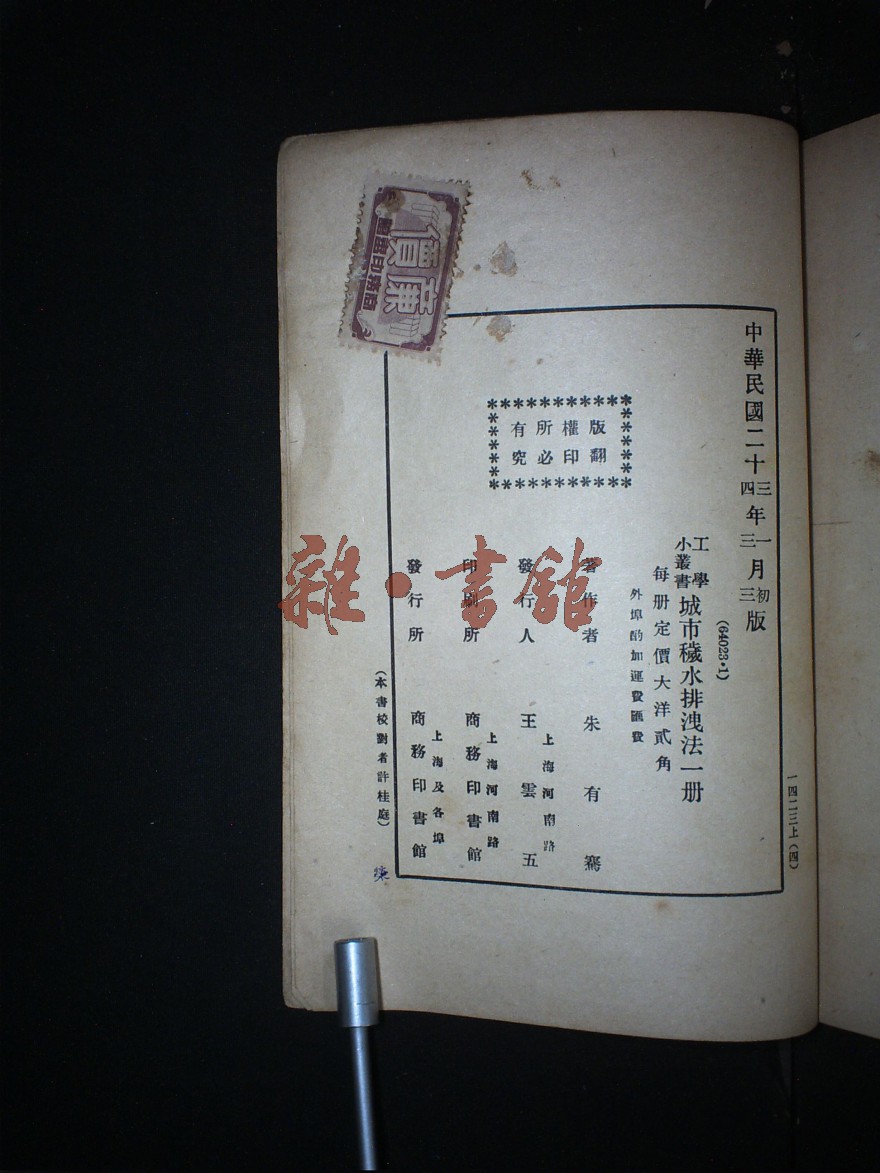 一四二三上(四)
中華民國二十三年一月初版
四 三 三
(64023·1)
工學小叢書 城市穢水排洩法一册
每册定價大洋貳角
外埠酌加運費匯費
版權所有
翻印必究
著作者 朱有騫
發行人 王雲五
上海河南路
印刷所 商務印書館
上海河南路
發行所 商務印書館
上海及各埠
(本書校對者許桂庭)
商務印書館
廉價
章
雜·書館